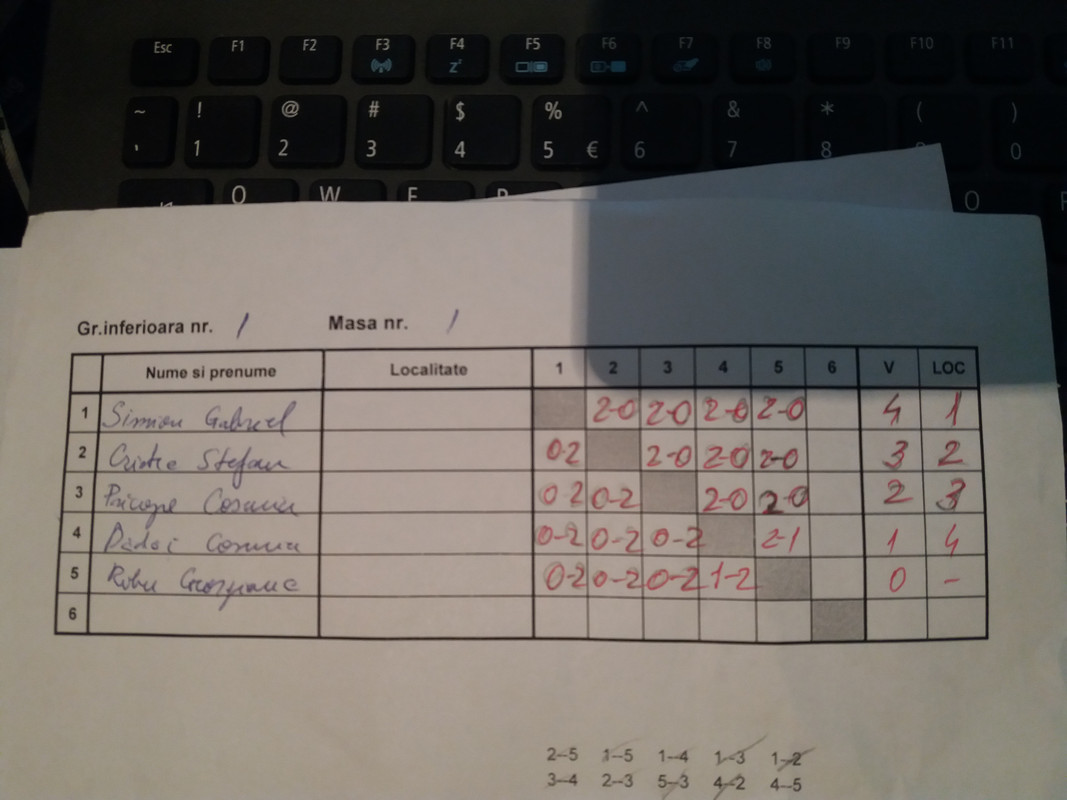 Esc F1 F2 F3 F4 F5 F6 F7 F8 F9 F10 F11
~ ! @ # $ % ^ & * ( )
1 2 3 4 5 € 6 7 8 0
Q W O
Gr.inferioara nr. 1 Masa nr. 1
Nume si prenume Localitate 1 2 3 4 5 6 V LOC
1 Simion Gabriel 2-0 2-0 2-0 2-0 4 1
2 Stefan 0-2 2-0 2-0 2-0 3 2
3 0-2 0-2 2-0 2-0 2 3
4 0-2 0-2 0-2 2-1 1 4
5 Robu 0-2 0-2 0-2 1-2 0 -
6
2–5 1–5 1–4 1–3 1–2
3–4 2–3 5–3 4–2 4–5